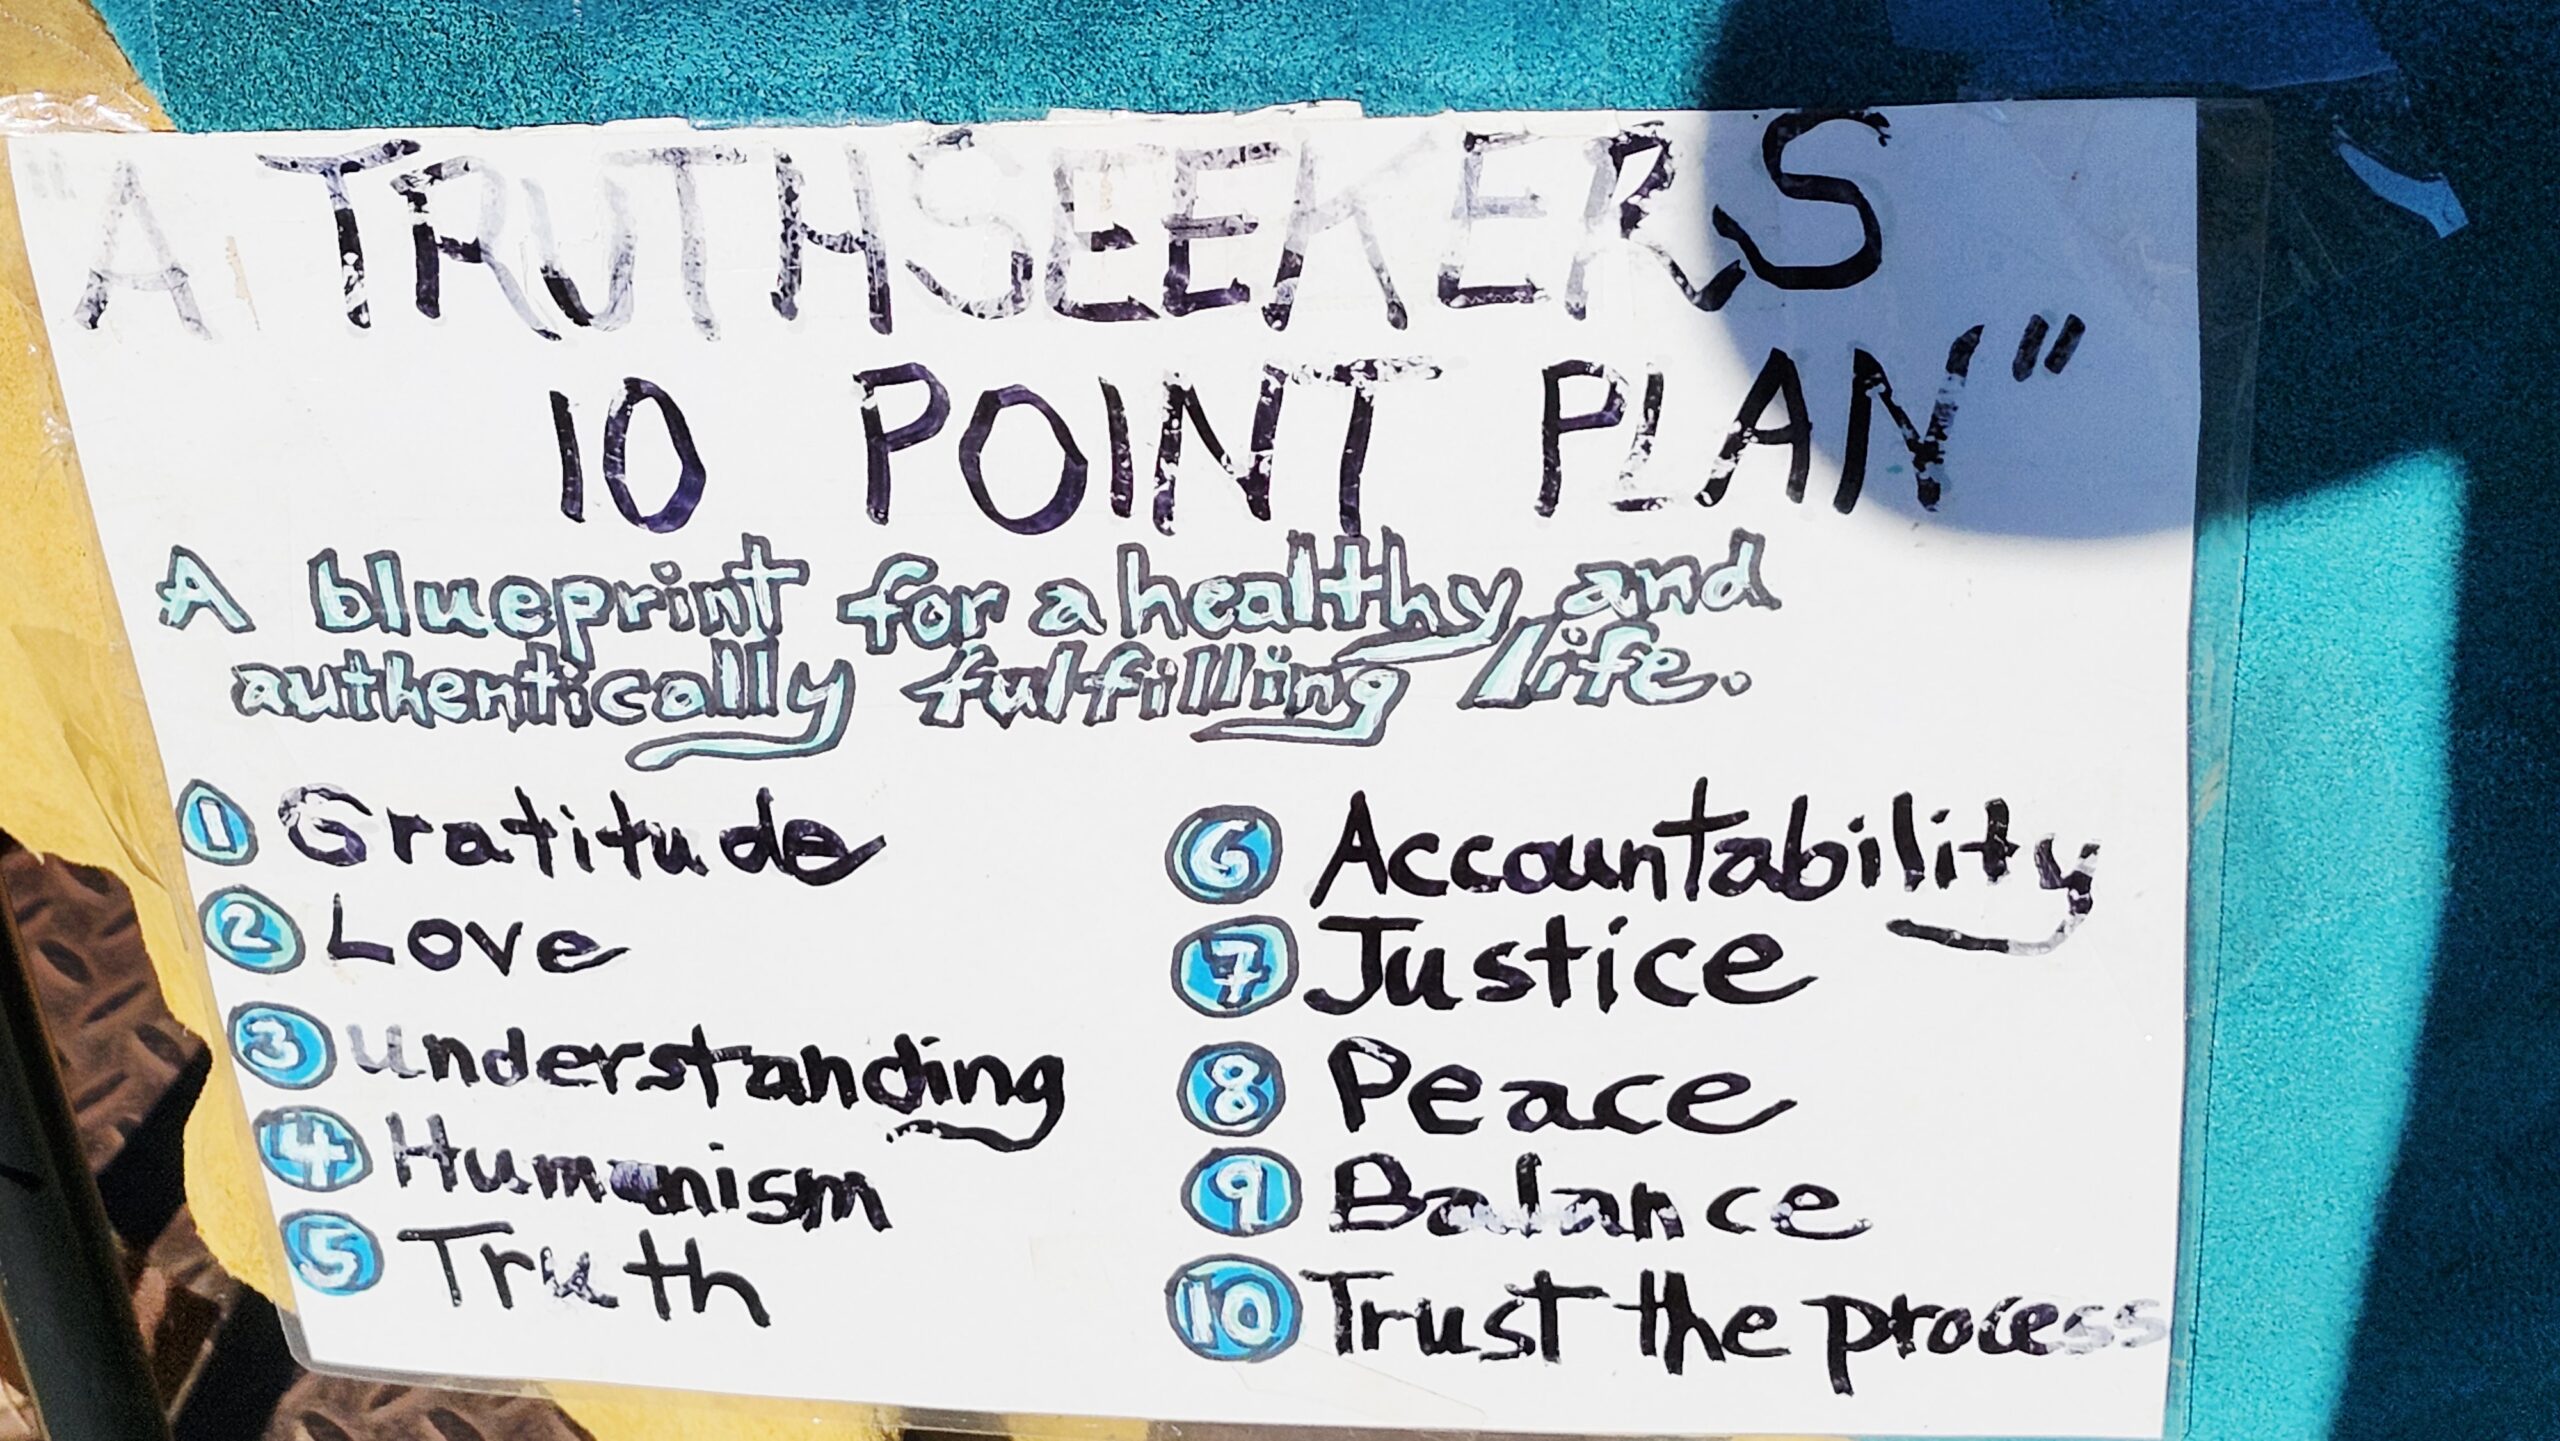 "A TRUTHSEEKERS
10 POINT PLAN"
A blueprint for a healthy and
authentically fulfilling life.
1 Gratitude
2 Love
3 Understanding
4 Humanism
5 Truth
6 Accountability
7 Justice
8 Peace
9 Balance
10 Trust the process